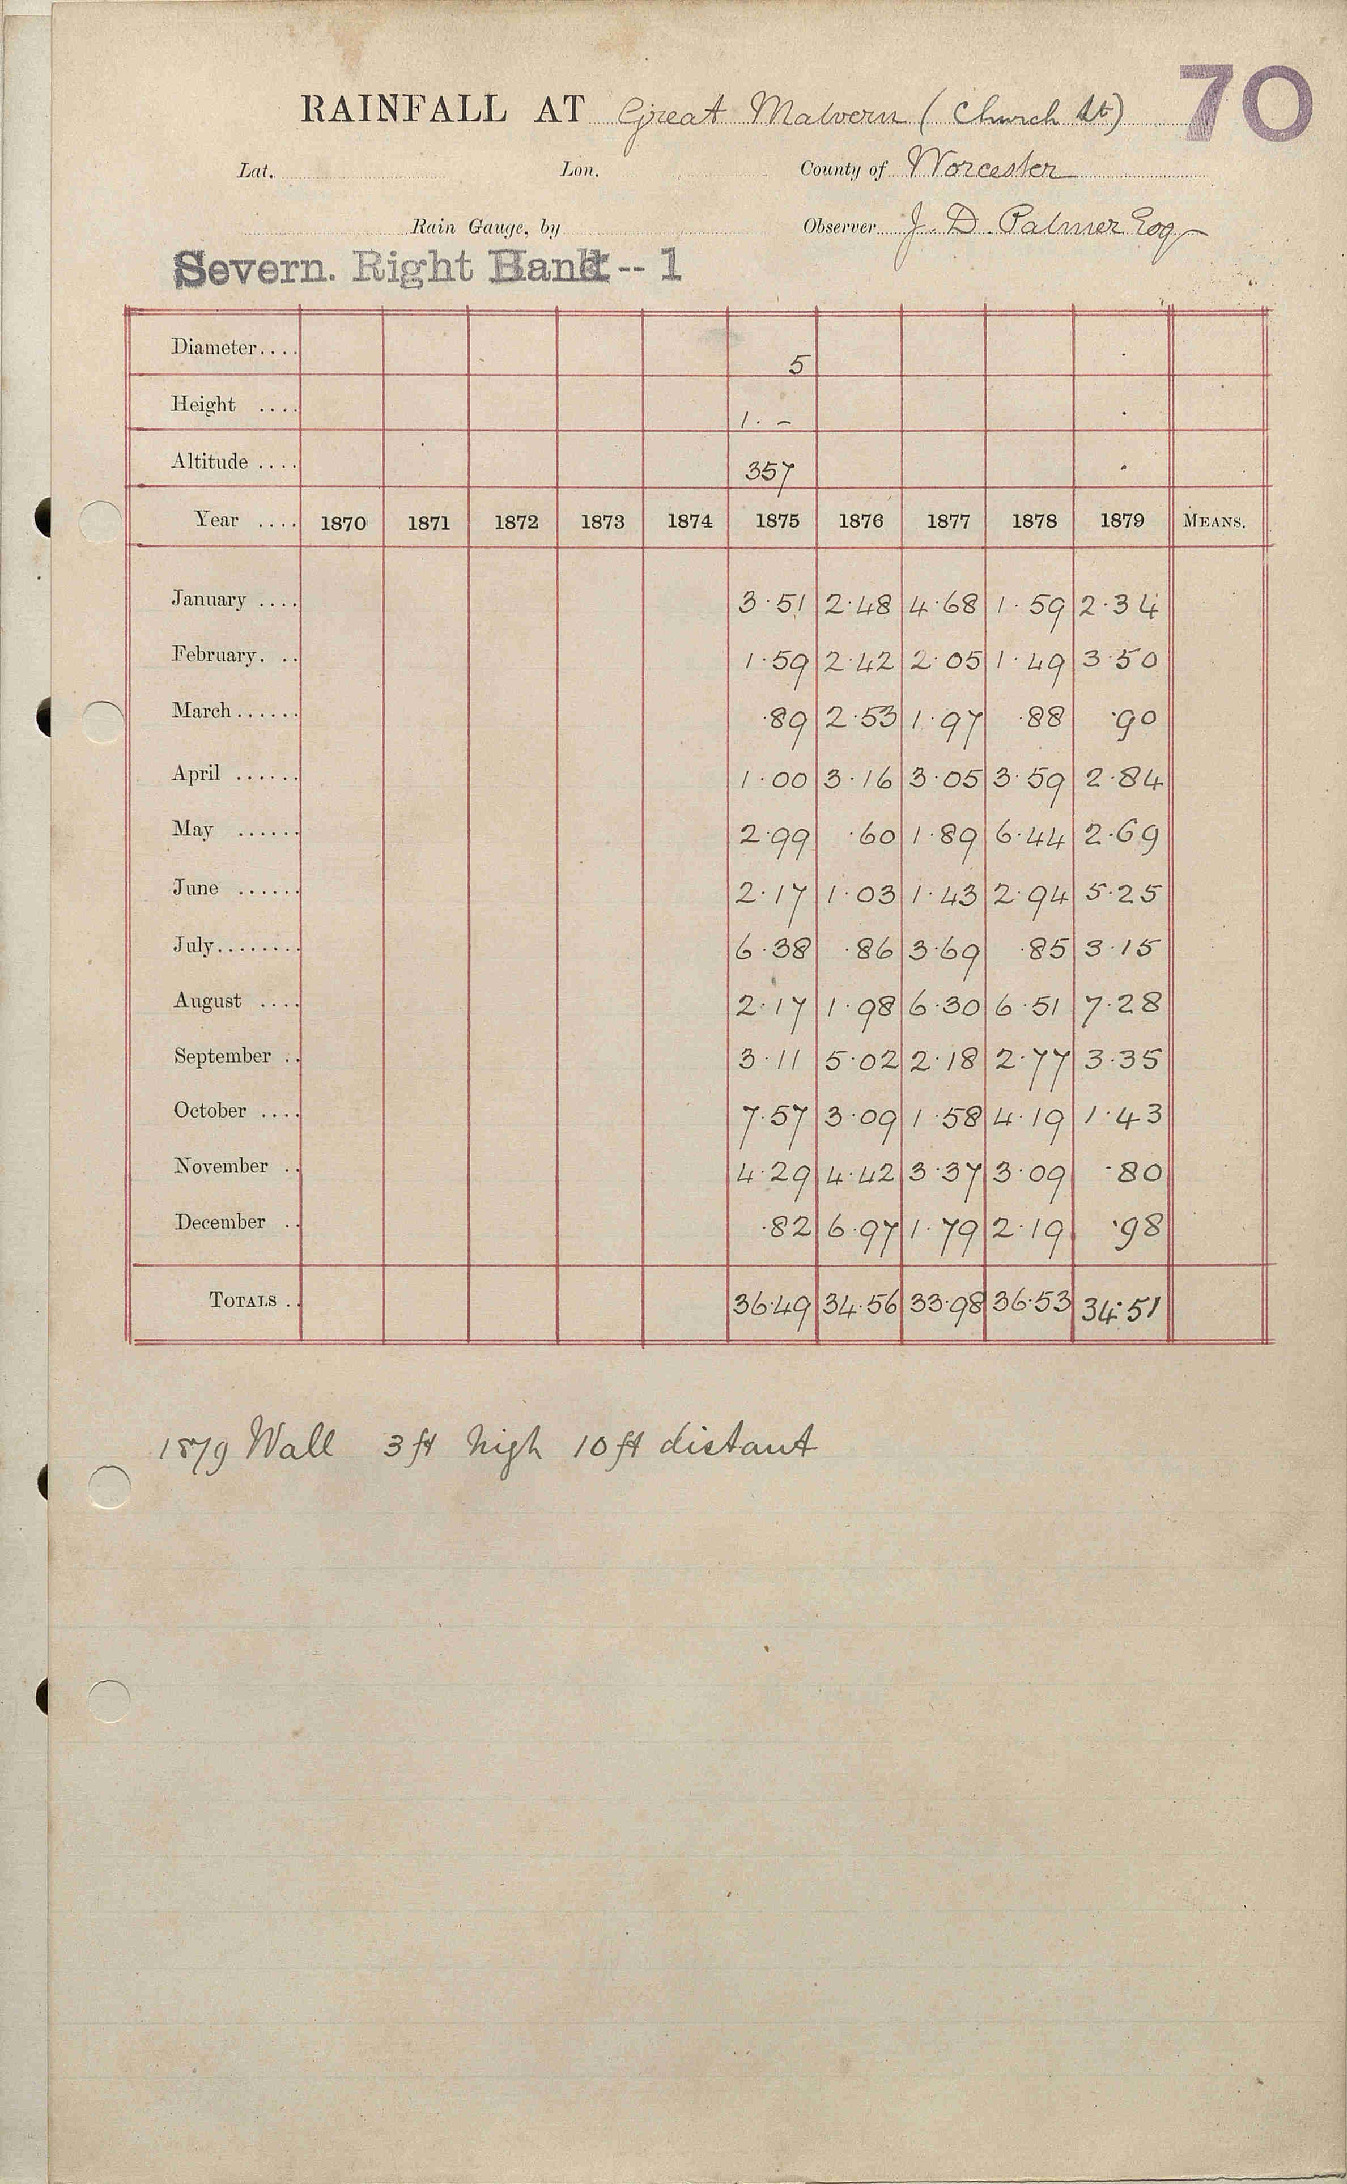 70
RAINFALL AT Great Malvern (Church St)
Lat. Lon. County of Worcester
Rain Gauge, by Observer J. D. Palmer Esq
Severn. Right Bank -- 1
Diameter.... 5
Height .... 1. -
Altitude .... 357
Year .... 1870 1871 1872 1873 1874 1875 1876 1877 1878 1879 MEANS.
January .... 3.51 2.48 4.68 1.59 2.34
February. .. 1.59 2.42 2.05 1.49 3.50
March...... .89 2.53 1.97 .88 .90
April ...... 1.00 3.16 3.05 3.59 2.84
May ...... 2.99 .60 1.89 6.44 2.69
June ...... 2.17 1.03 1.43 2.94 5.25
July........ 6.38 .86 3.69 .85 3.15
August .... 2.17 1.98 6.30 6.51 7.28
September .. 3.11 5.02 2.18 2.77 3.35
October .... 7.57 3.09 1.58 4.19 1.43
November .. 4.29 4.42 3.37 3.09 .80
December .. .82 6.97 1.79 2.19 .98
TOTALS .. 36.49 34.56 33.98 36.53 34.51
1879 Wall 3 ft high 10 ft distant